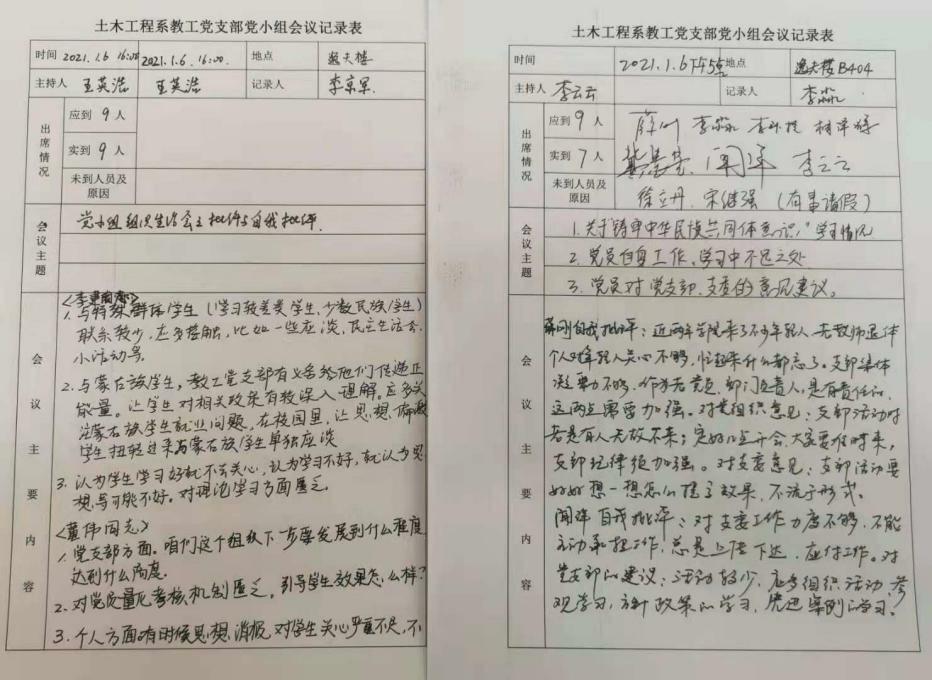 土木工程系教工党支部党小组会议记录表
时间 2021.1.6 16:00 2021.1.6. 16:00. 地点 逸夫楼
主持人 王英浩 王英浩 记录人 李京军
出席情况
应到 9 人
实到 9 人
未到人员及原因
会议主题
党小组组织生活会主 批评与自我批评
会议主要内容
1. 与特殊群体学生（学习较差类学生、少数民族学生）
联系较少，应多接触，比如一些座谈，民主生活会、
小活动等。
2. 与蒙古族学生，教工党支部有义务给他们传递正
能量。让学生对相关政策有较深入理解。应多关
注蒙古族学生就业问题，在校园里，让思想偏激
学生扭转过来与蒙古族学生单独座谈
3. 认为学生学习好就不去关心，认为学习不好，就认为思
想可能不好。对理论学习方面匮乏。
<董伟同志>
1. 党支部方面。咱们这个组织下一步要发展到什么程度
达到什么高度。
2. 对党员量化考核机制匮乏，引导学生效果怎么样？
3. 个人方面有时候思想消极，对学生关心严重不足，不
土木工程系教工党支部党小组会议记录表
时间 2021.1.6下午5点 地点 逸夫楼B404
主持人 李云云 记录人 李淼
出席情况
应到 9 人 薛刚 李淼
实到 7 人 闻洋 李云云
未到人员及原因 徐立丹 宋继强（有事请假）
会议主题
1. 关于“铸牢中华民族共同体意识”学习情况
2. 党员自身工作、学习中不足之处
3. 党员对党支部、支委的意见建议。
会议主要内容
薛刚自我批评：近两年学院来了不少年轻人，老教师退休
个人对年轻人关心不够，忙起来什么都忘了。支部集体
凝聚力不够，作为老党员，部门负责人，是有责任的，
这两点需要加强。对党组织意见：支部活动时
若是有人无故不来；定好几点开会，大家要准时来，
支部纪律须加强。对支委意见：支部活动要
好好想一想怎么搞了效果，不流于形式。
闻洋自我批评：对支委工作力度不够，不能
主动承担工作，总是上传下达，应付工作。对
党支部的建议：活动较少，应多组织活动，参
观学习，方针政策的学习，先进案例的学习。